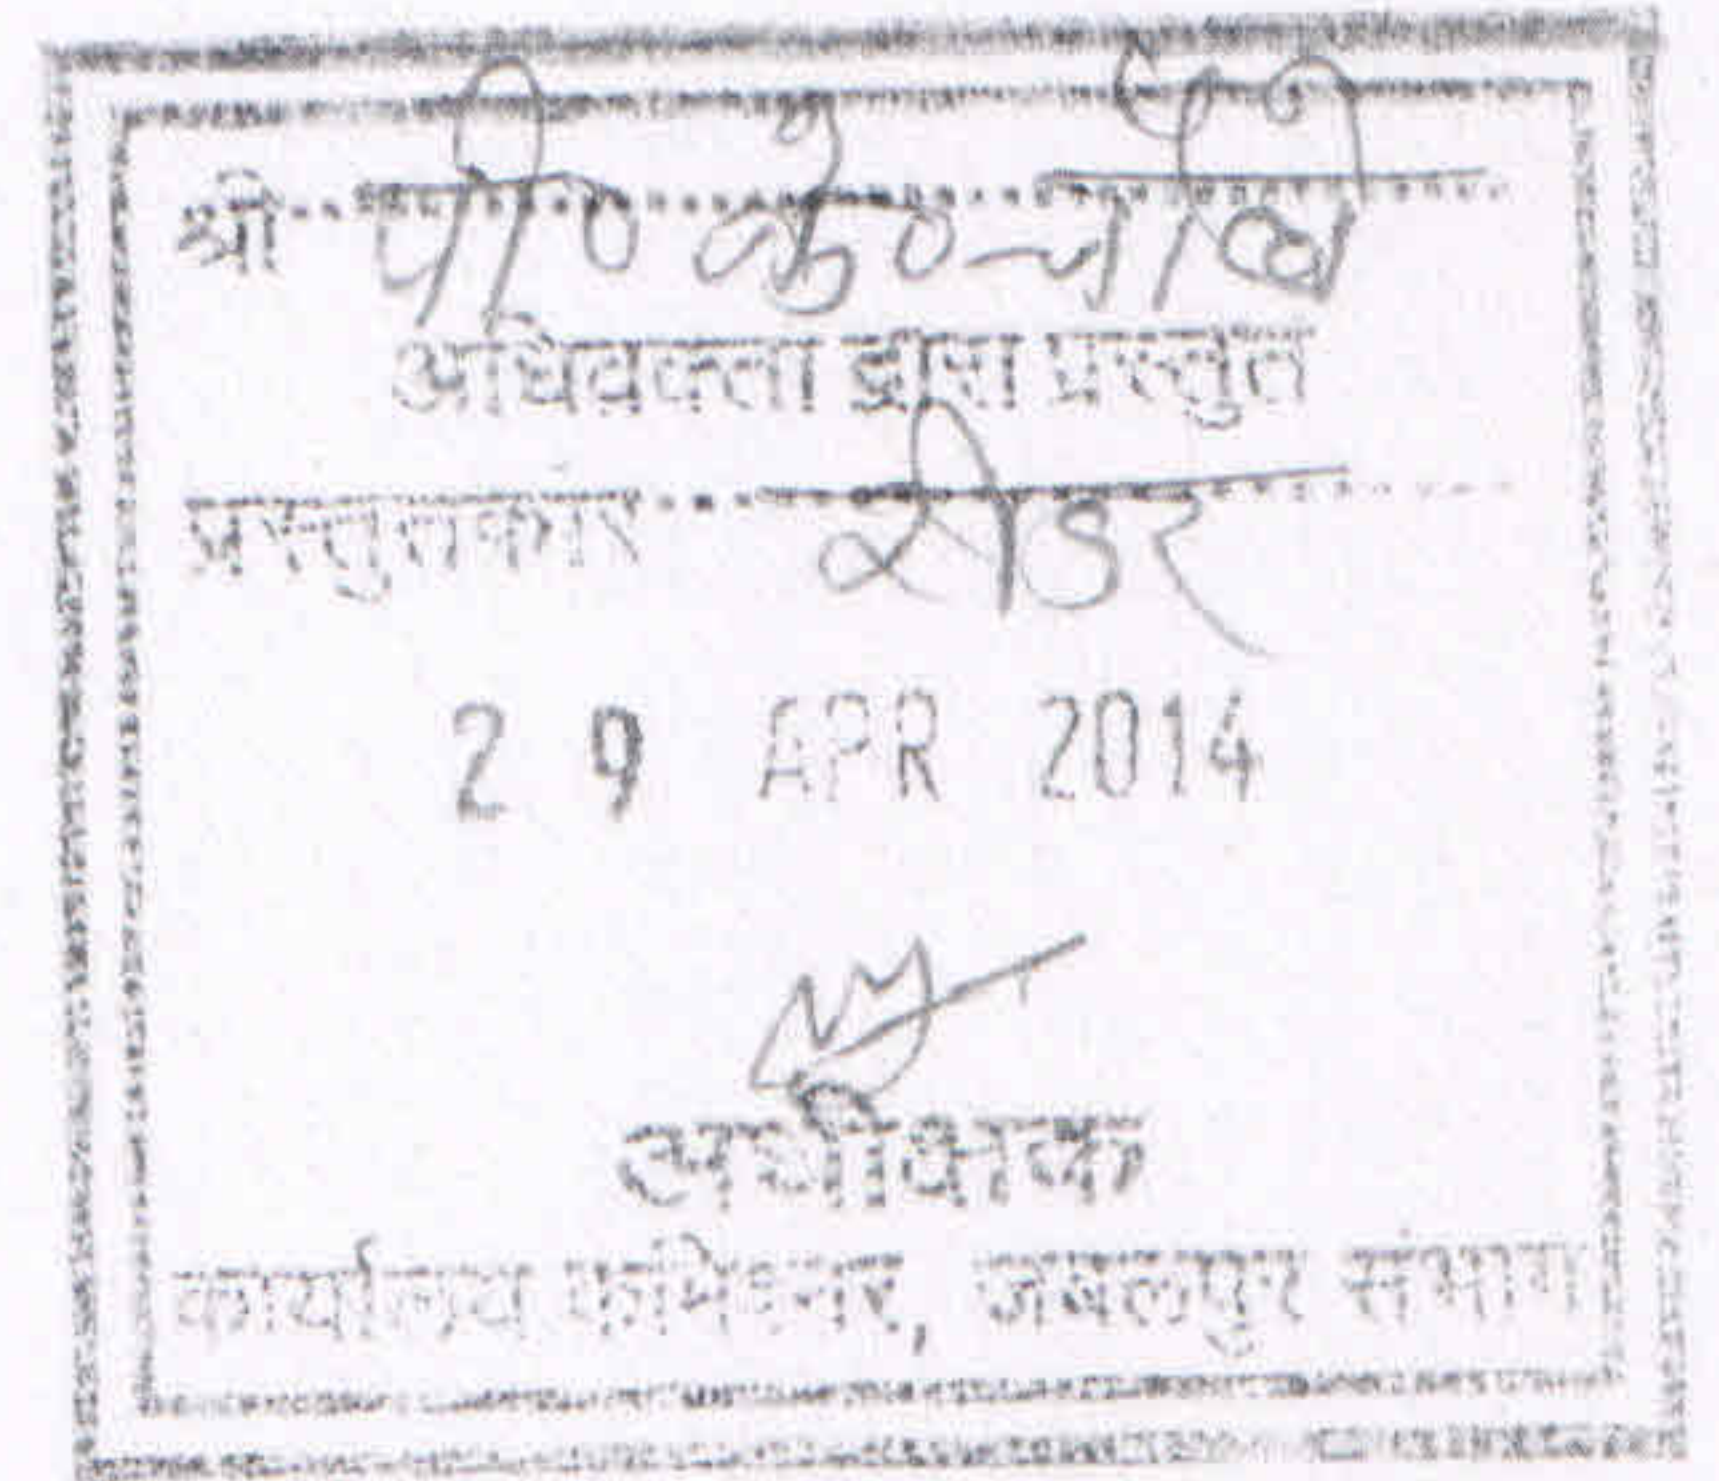 श्री पी० के०
अधिवक्ता द्वारा प्रस्तुत
प्रस्तुतकार रीडर
2 9 APR 2014
अधीक्षक
कार्यालय कमिश्नर, जबलपुर संभाग